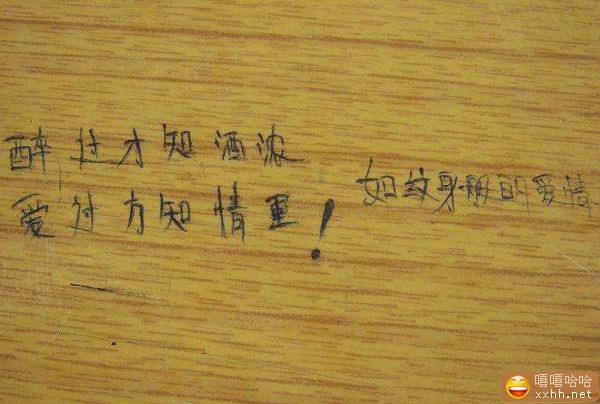 醉过才知酒浓
爱过方知情重!
如纹身般的爱情
嘻嘻哈哈
xxhh.net